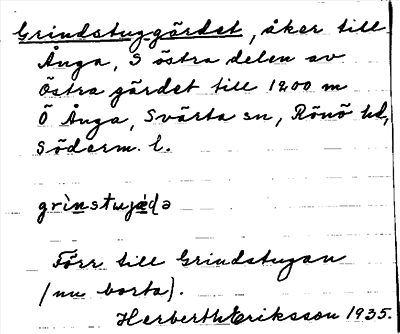 Grindstuggärdet, åker till
Ånga, S östra delen av
Östra gärdet till 1200 m
Ö Ånga, Svärta sn, Rönö hd,
Söderm. l.
Förr till Grindstugan
(nu borta).
Herbert Eriksson 1935.